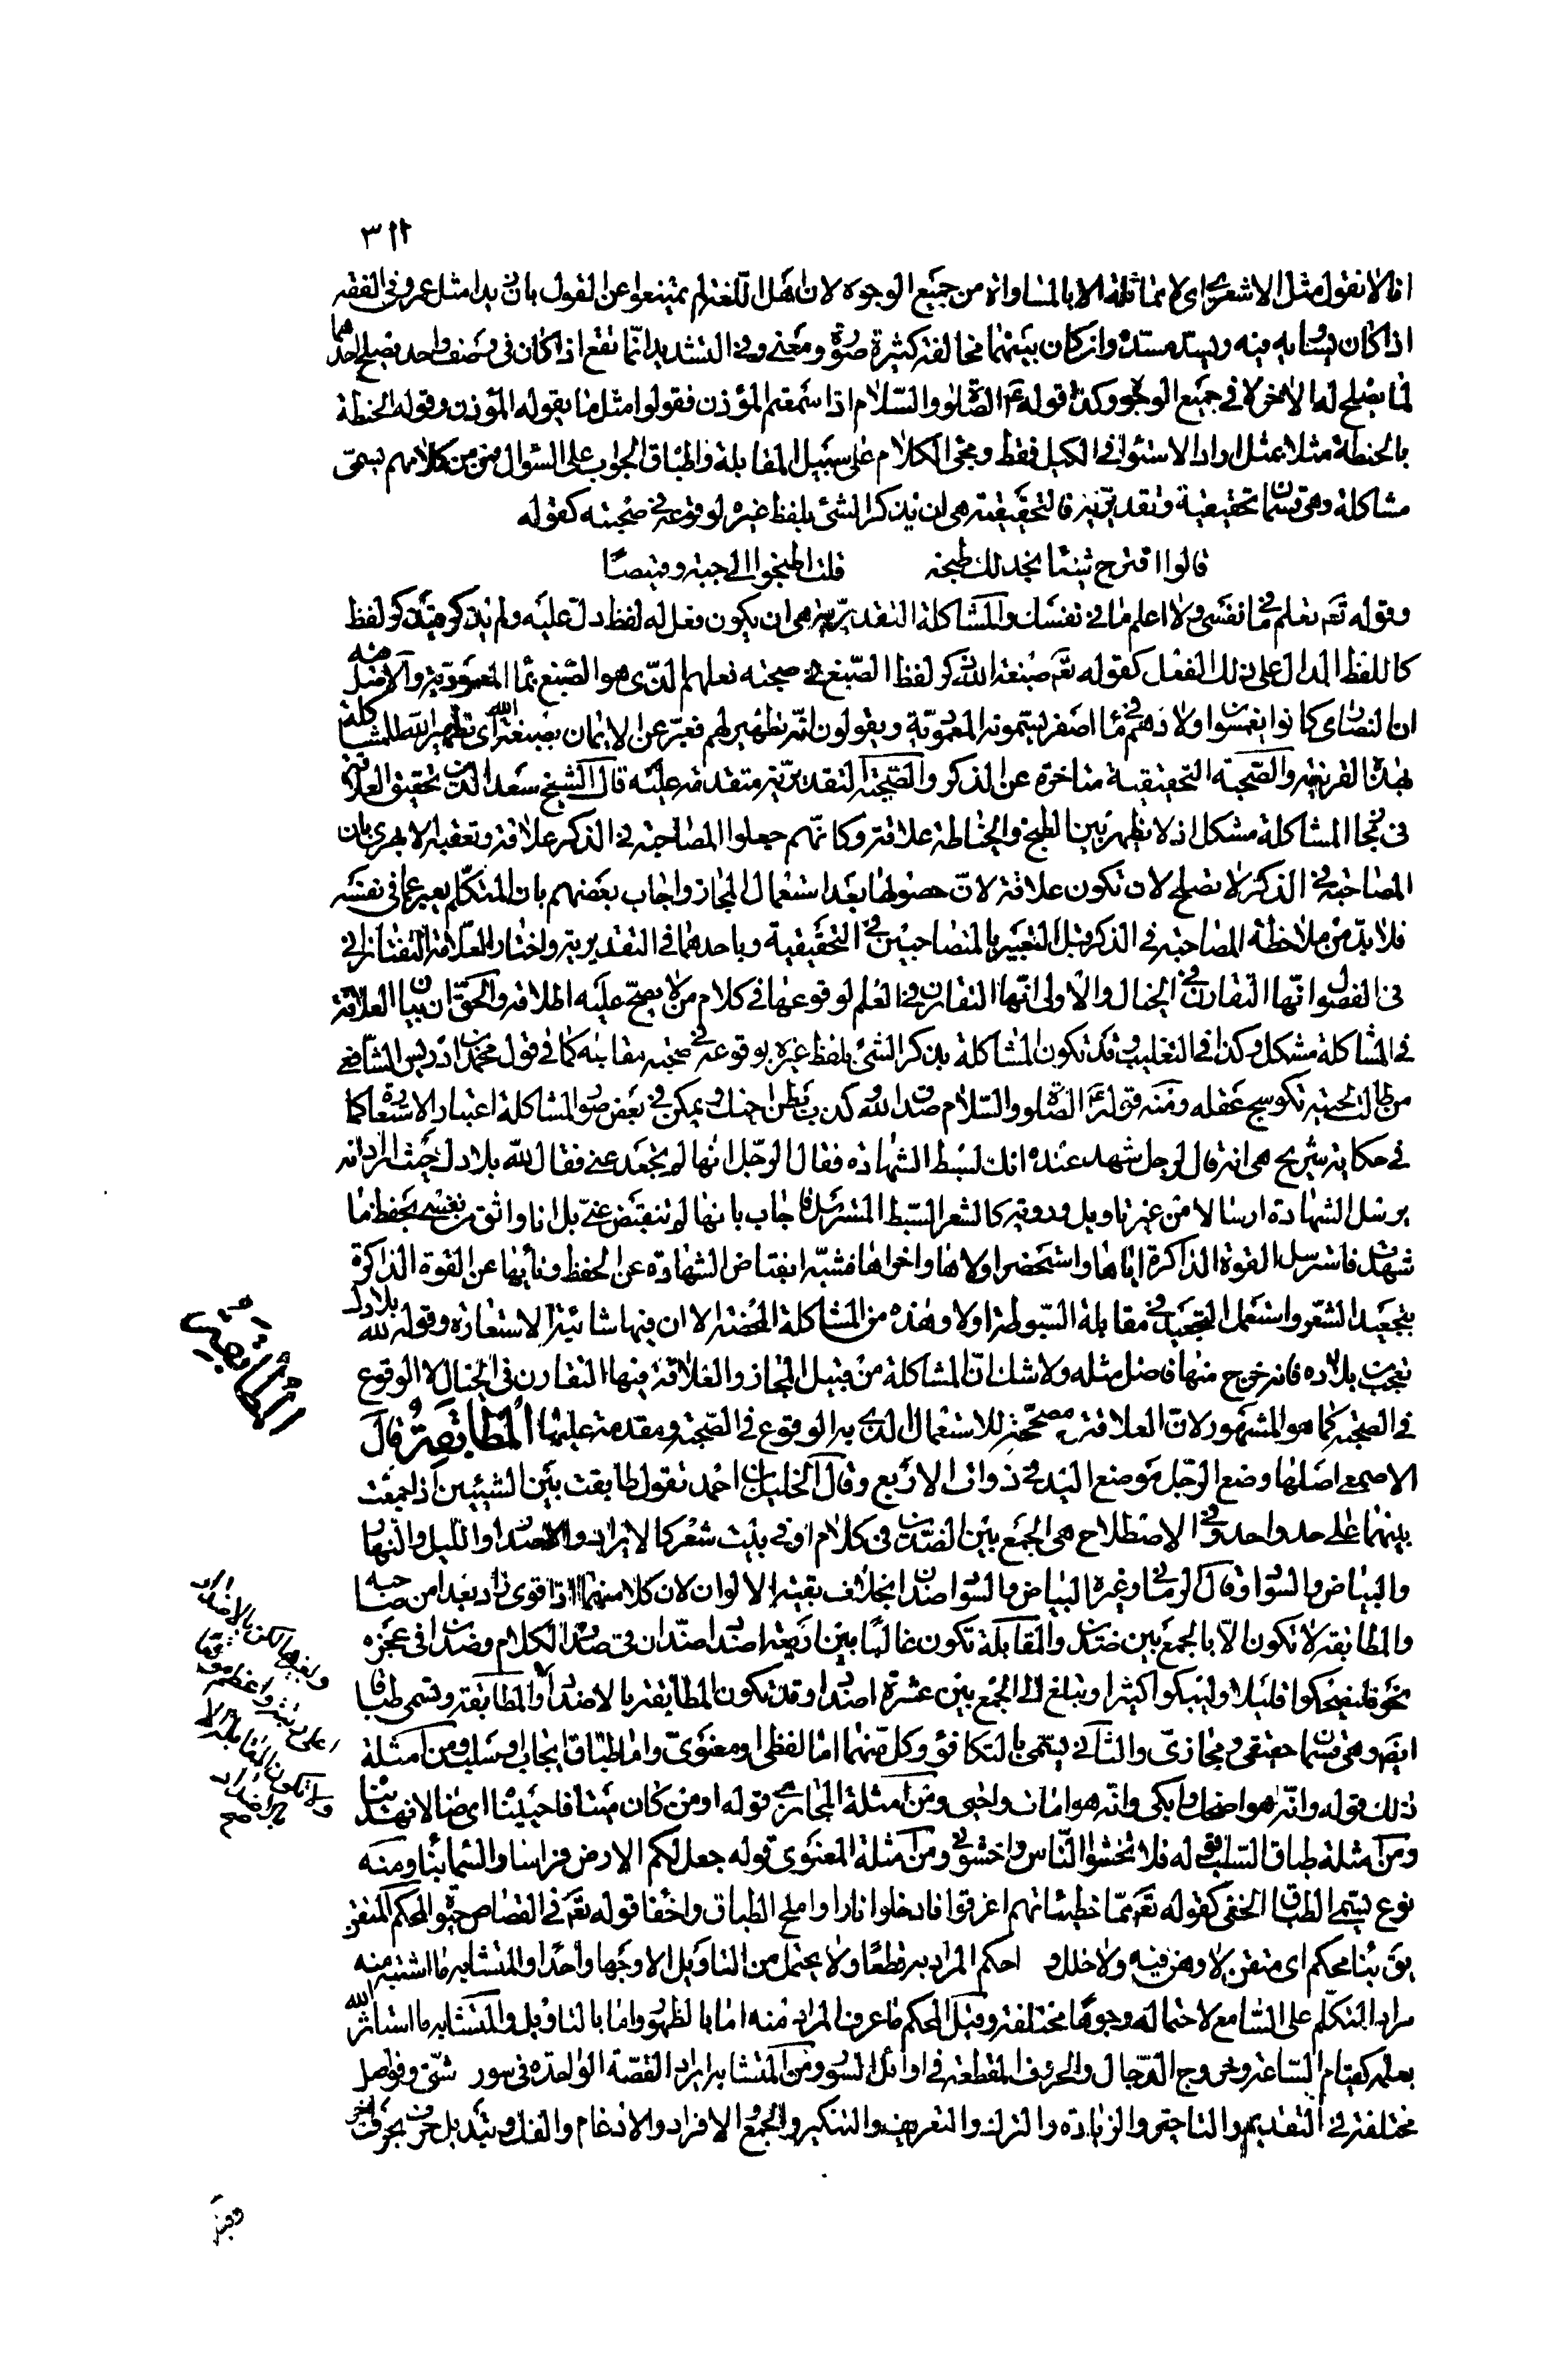 ٣١٢
انا لا نقول مثل الاشعري اى لا مماثلة الا بالمساواة من جميع الوجوه لان اهل اللغة لم يمتنعوا عن القول بان زيدا مثل عمرو فى الفقه
اذا كان يساويه فيه ويسد مسده وان كان بينهما مخالفة كثيرة صورة ومعنى وفى التشديد انما تقع اذا كان فى وصف واحد يصلح احدهما
لما يصلح له الاخر لا فى جميع الوجوه وكذا قوله عم الصلوة والسلام اذا سمعتم المؤذن فقولوا مثل ما يقوله المؤذن وقوله الحنطة
بالحنطة مثلا بمثل اراد الاستواء فى الكيل فقط ومجئ الكلام على سبيل المقابلة واطباق الجواب على السؤال فن من كلامهم يسمى
مشاكلة وهى قسمان تحقيقية وتقديرية فالتحقيقية هى ان يذكر الشئ بلفظ غيره لوقوعه فى صحبته كقوله
قالوا اقترح شيئا نجد لك طبخه قلت اطبخوا لى جبة وقميصا
وقوله تع تعلم ما فى نفسى ولا اعلم ما فى نفسك والمشاكلة التقديرية هى ان يكون فعل له لفظ دل عليه ولم يذكر فيذكر لفظ
كاللفظ الدال على ذلك الفعل كقوله تع صبغة الله ذكر لفظ الصبغ فى صحبة فعلهم الذى هو الصبغ بماء المعمودية والاصل منه
ان النصارى كانوا يغمسون اولادهم فى ماء اصفر يسمونه المعمودية ويقولون انه تطهير لهم فعبر عن الايمان بصبغة الله اى تطهير الله للمشاكلة
بهذه القرينة والصحبة التحقيقية متاخرة عن الذكر والصحبة التقديرية متقدمة عليه قال الشيخ سعد الدين تحقيق العلاقة
فى مجاز المشاكلة مشكل اذ لا يظهر بين الطبخ والخياطة علاقة وكانهم جعلوا المصاحبة فى الذكر علاقة وتعقبه الابهرى بان
المصاحبة فى الذكر لا تصلح لان تكون علاقة لان حصولها بعد استعمال المجاز واجاب بعضهم بان المتكلم يعبر عما فى نفسه
فلا بد من ملاحظة المصاحبة فى الذكر قبل التعبير بالمتصاحبين فى التحقيقية وباحدهما فى التقديرية واختار العلامة التفتازانى
فى الفصول انها التقارن فى الخيال والاولى انها التقارن فى العلم لوقوعها فى كلام من لا يصح عليه اطلاقه والحق ان بيان العلاقة
فى المشاكلة مشكل وكذا فى التغليب وقد تكون المشاكلة بذكر الشئ بلفظ غيره لوقوعه فى صحبة مقابله كما فى قول محمد بن ادريس الشافعى
من طالت لحيته تكوسج عقله ومنه قوله عم الصلوة والسلام صدق الله وكذب بطن اخيك ويمكن فى بعض صور المشاكلة اعتبار الاستعارة كما
فى حكاية شريح هى انه قال لرجل شهد عنده انك لسبط الشهادة فقال الرجل انها لم تجعد عنى فقال لله بلادك حيث اراد انه
يرسل الشهادة ارسالا من غير تاويل وروية كالشعر السبط المسترسل فاجاب بانها لم تنقبض عنى بل انا واثق من نفسى بحفظ ما
شهدت فاسترسل القوة الذاكرة اياها واستحضر اولاها واخراها فشبه انقباض الشهادة عن الحفظ وتأبيها عن القوة الذاكرة
بتجعيد الشعر واستعمل التجعيد فى مقابلة السبوطة اولا وهذه من المشاكلة المحضة الا ان فيها شائبة الاستعارة وقوله لله بلادك
تعجب من بلاده فانه خرج منها فاضل مثله ولا شك ان المشاكلة من قبيل المجاز والعلاقة فيها التقارن فى الخيال لا الوقوع
فى الصحبة كما هو المشهور لان العلاقة مصححة للاستعمال الذى به الوقوع فى الصحبة ومقدمة عليها المطابقة قال
الاصمعى اصلها وضع الرجل موضع اليد فى ذوات الاربع وقال الخليل بن احمد تقول طابقت بين الشيئين اذا جمعت
بينهما على حد واحد وفى الاصطلاح هى الجمع بين الضدين فى كلام او فى بيت شعر كالايراد والاصدار والليل والنهار
والبياض والسواد وقال الرمانى وغيره البياض والسواد ضدان بخلاف بقية الالوان لان كلا منهما اذا قوى زاد بعدا من صاحبه
والمطابقة لا تكون الا بالجمع بين ضدين والمقابلة تكون غالبا بين اربعة اضداد ضدان فى صدر الكلام وضدان فى عجزه
نحو فليضحكوا قليلا وليبكوا كثيرا وتبلغ الى الجمع بين عشرة اضداد وقد تكون المطابقة بالاضداد والمطابقة وتسمى طباقا
ايضا وهى قسمان حقيقى ومجازى والثانى يسمى بالتكافؤ وكل منهما اما لفظى او معنوى واما طباق ايجاب او سلب ومن امثلة
ذلك قوله وانه هو اضحك وابكى وانه هو امات واحيى ومن امثلة المجازى قوله او من كان ميتا فاحييناه اى ضالا فهديناه
ومن امثلة طباق السلب قوله فلا تخشوا الناس واخشونى ومن امثلة المعنوى قوله جعل لكم الارض فراشا والسماء بناء ومنه
نوع يسمى الطباق الخفى كقوله تع مما خطيئاتهم اغرقوا فادخلوا نارا واملح الطباق واخفاه قوله تع فى القصاص حيوة المحكم المتقن
يق بناء محكم اى متقن لا وهن فيه ولا خلل و احكم المراد به قطعا ولا يحتمل من التاويل الا وجها واحدا والمتشابه ما اشتبه منه
مراد المتكلم على السامع لاحتماله وجوها مختلفة وقيل المحكم ما عرف المراد منه اما بالظهور واما بالتاويل والمتشابه ما استاثر الله
بعلمه كقيام الساعة وخروج الدجال والحروف المقطعة فى اوائل السور ومن المتشابه ايراد القصة الواحدة فى سور شتى وفواصل
مختلفة فى التقديم والتاخير والزيادة والترك والتعريف والتنكير والجمع والافراد والادغام والفك وتبديل حرف بحرف اخر
المطابقة